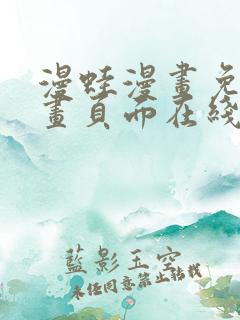 漫蛙漫畫免
畫頁面在綫
藍影玉空
未经同意禁止转载